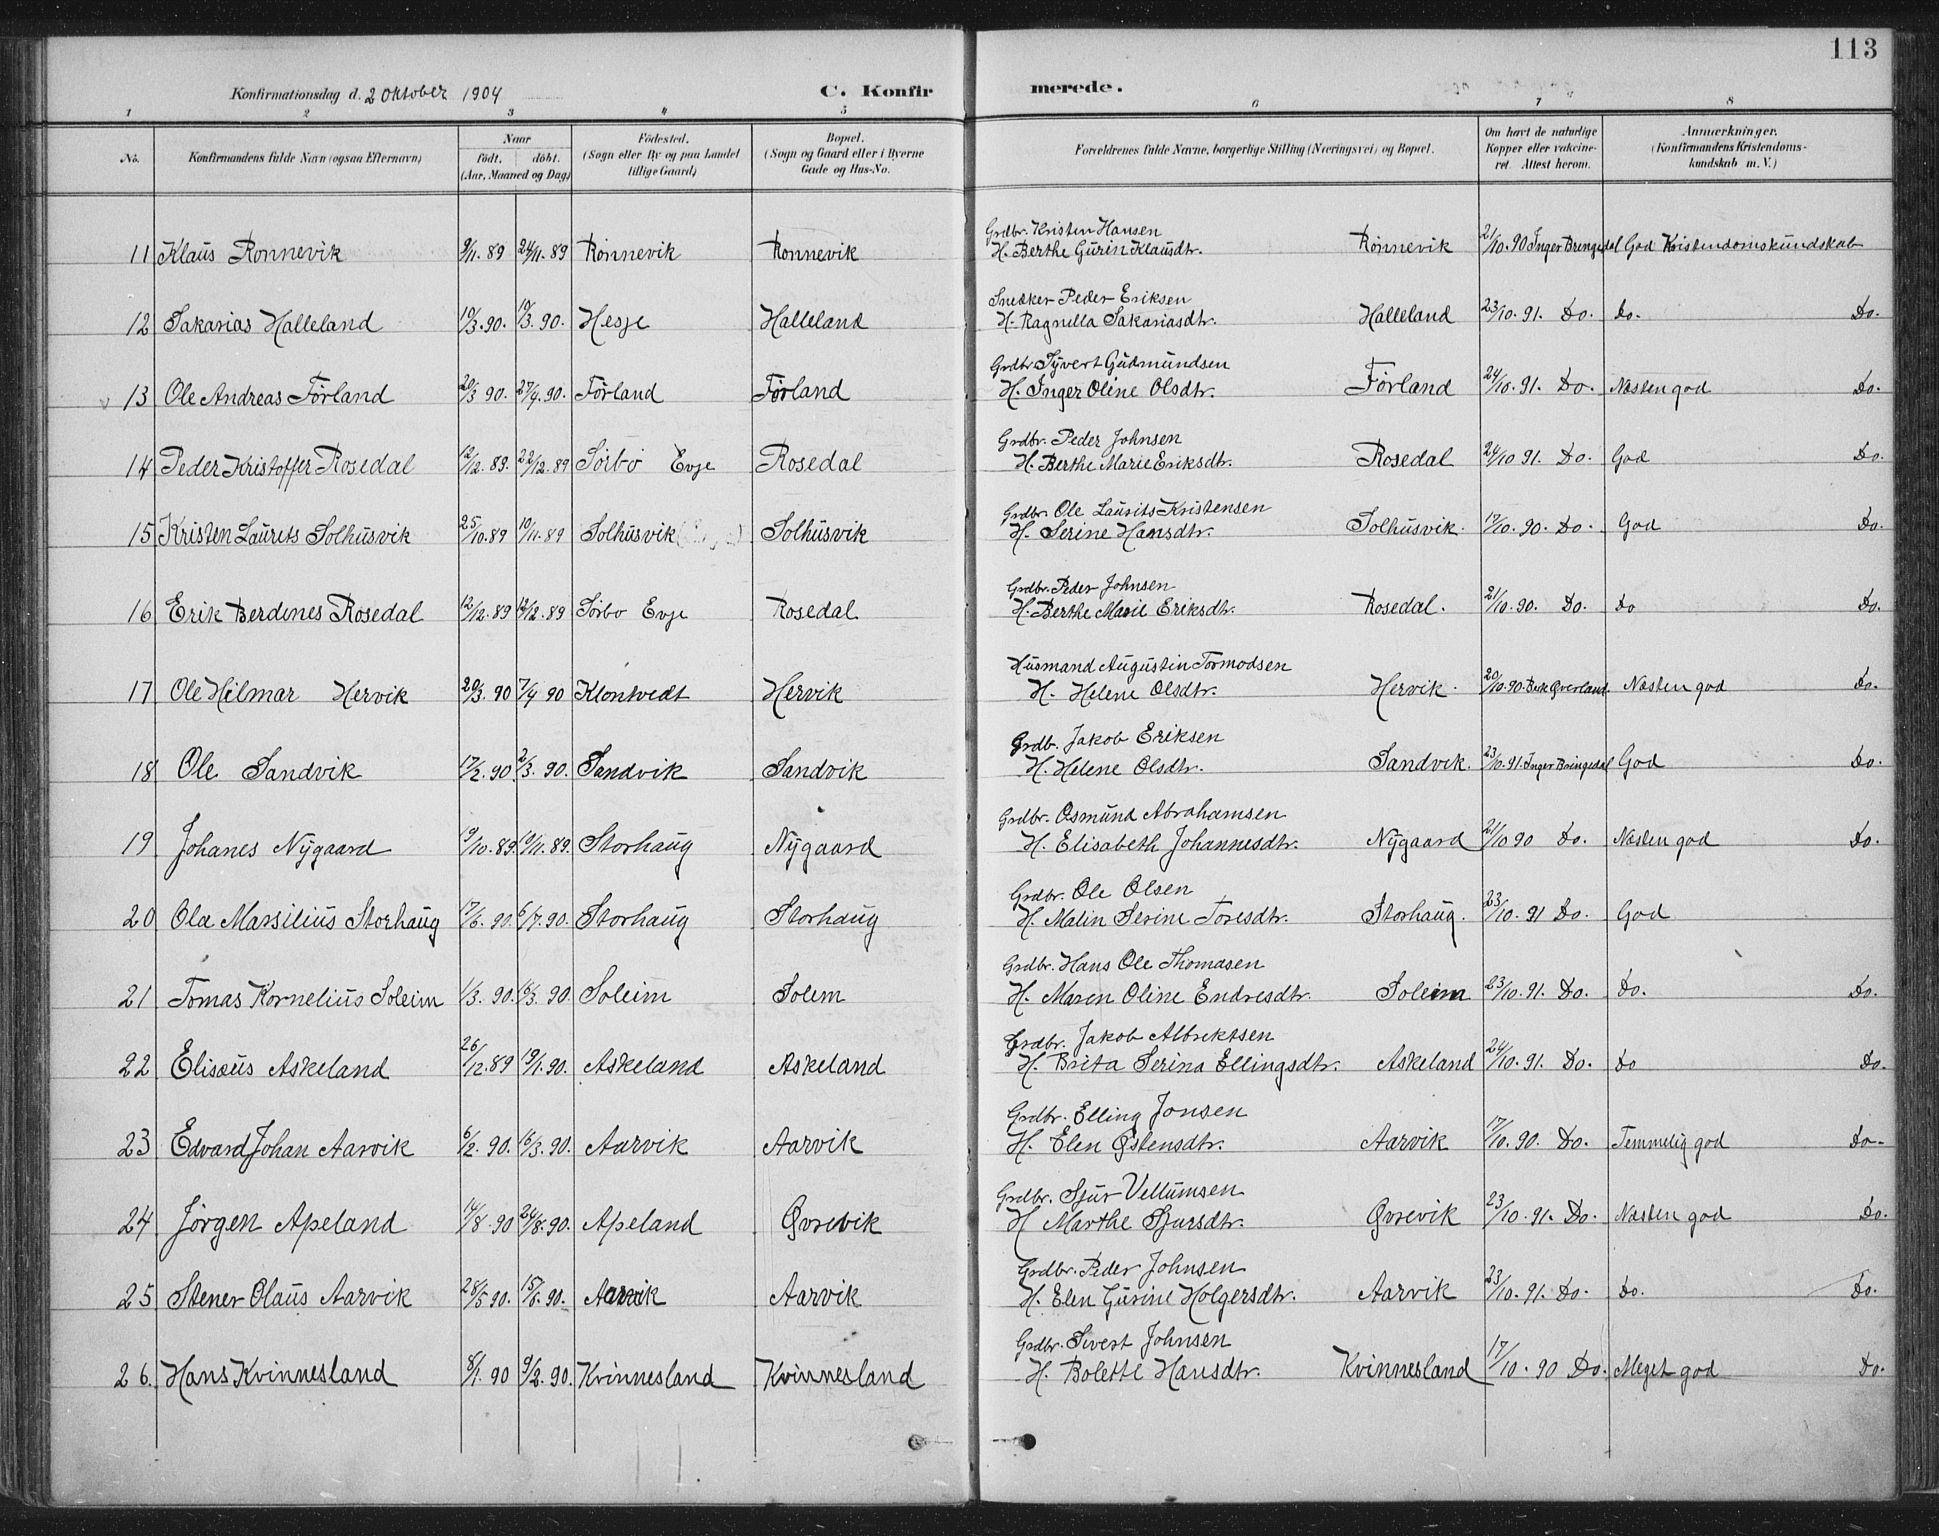 113
Konfirmationsdag d. 2 Oktober 1904 C. Konfirmerede.
1 2 3 4 5 6 7 8
No. Konfirmandens fulde Navn (ogsaa Efternavn) Naar födt. döbt. (Aar, Maaned og Dag) Födested. (Sogn eller By og paa Landet tillige Gaard) Bopæl. (Sogn og Gaard eller i Byerne Gade og Hus-No. Forældrenes fulde Navne, borgerlige Stilling (Næringsvei) og Bopæl. Om havt de naturlige Kopper eller vakcineret. Attest herom. Anmærkninger. (Konfirmandens Kristendomskundskab m. V.)
Grdbr. Kristen Hansen
11 Klaus Rønnevik 9/11. 89 24/11. 89 Rønnevik Rønnevik H. Berthe Gurin Klausdtr. Rønnevik 21/10. 90 Inger Bringedal God Kristendomskundskab
Snedker Peder Eriksen
12 Sakarias Halleland 10/3. 90. 19/3. 90. Hesje Halleland H. Ragnilla Sakariasdtr. Halleland 23/10. 91. Do. Do. Do.
Grdbr Syvert Gudmundsen
13 Ole Andreas Førland 20/3 90. 27/4. 90. Førland Førland H. Inger Oline Olsdtr. Førland 24/10. 91. Do. Næsten god Do.
Grdbr. Peder Johnsen
14 Peder Kristoffer Rosedal 12/12. 89. 22/12. 89 Sørbø Evje Rosedal H. Berthe Marie Eriksdtr. Rosedal 24/10 91. Do. God Do.
Grdbr. Ole Laurits Kristensen
15 Kristen Laurits Solhusvik 25/10. 89 10/11. 89 Solhusvik Solhusvik H. Serine Hansdtr. Solhusvik. 17/10. 90. Do. God Do.
Grdbr. Peder Johnsen
16 Erik Berdines Rosedal 12/12. 89 12/12. 89 Sørbø Evje Rosedal H. Berthe Marie Eriksdtr. Rosedal. 21/10. 90. Do. Do Do.
Husmand Augustin Tormodsen
17 Ole Hilmar Hervik 20/3. 90 7/4 90 Klontvedt Hervik H. Helene Olsdtr. Hervik. 20/10. 90. Øverland. Næsten god Do.
Grdb. Jakob Eriksen
18 Ole Sandvik 17/2. 90 2/3. 90. Sandvik Sandvik H. Helene Olsdtr. Sandvik. 23/10. 91. Inger Bringedal God Do.
Grdbr. Osmund Abrahamsen
19 Johanes Nygaard 9/10. 89. 10/11. 89. Storhaug Nygaard H. Elisabeth Johannesdtr. Nygaard 21/10 90 Do. Næsten god Do.
Grdbr. Ole Olsen
20 Ola Marsilius Storhaug 17/6. 90 6/7. 90. Storhaug Storhaug H. Malin Serine Toresdtr. Storhaug. 23/10. 91 Do. God
Grdbr. Hans Ole Thomasen
21 Tomas Kornelius Soleim 1/3. 90. 16/3. 90. Soleim Solem H. Maren Oline Endresdtr. Soleim 23/10. 91. Do. Do. Do.
Grdbr. Jakob Albrektsen
22 Elisæus Askeland 26/12. 89 19/1. 90. Askeland Askeland H. Brita Serina Ellingsdtr. Askeland 24/10. 91. Do. Do Do.
Grdbr. Elling Jonsen
23 Edvard Johan Aarvik 6/2. 90. 16/3. 90. Aarvik Aarvik H. Elen Østensdtr. Aarvik 17/10. 90. Do. Temmelig god Do.
Grdbr. Sjur Vellumsen
24 Jørgen Apeland 14/8. 90 24/8. 90. Apeland Øvrevik H Marthe Sjursdtr. Øvrevik 23/10. 91. Do. Næsten god Do.
Grdbr. Peder Johnsen
25 Stener Olaus Aarvik 28/5 90. 15/6. 90. Aarvik Aarvik H. Elen Gurine Holgersdtr. Aarvik 23/10. 91. Do. Do. Do.
Grdbr. Sivert Johnsen
26. Hans Kvinnesland 8/1. 90 9/2. 90. Kvinnesland Kvinnesland H. Bolette Hansdtr. Kvinnesland 17/10. 90 Do. Meget god Do.